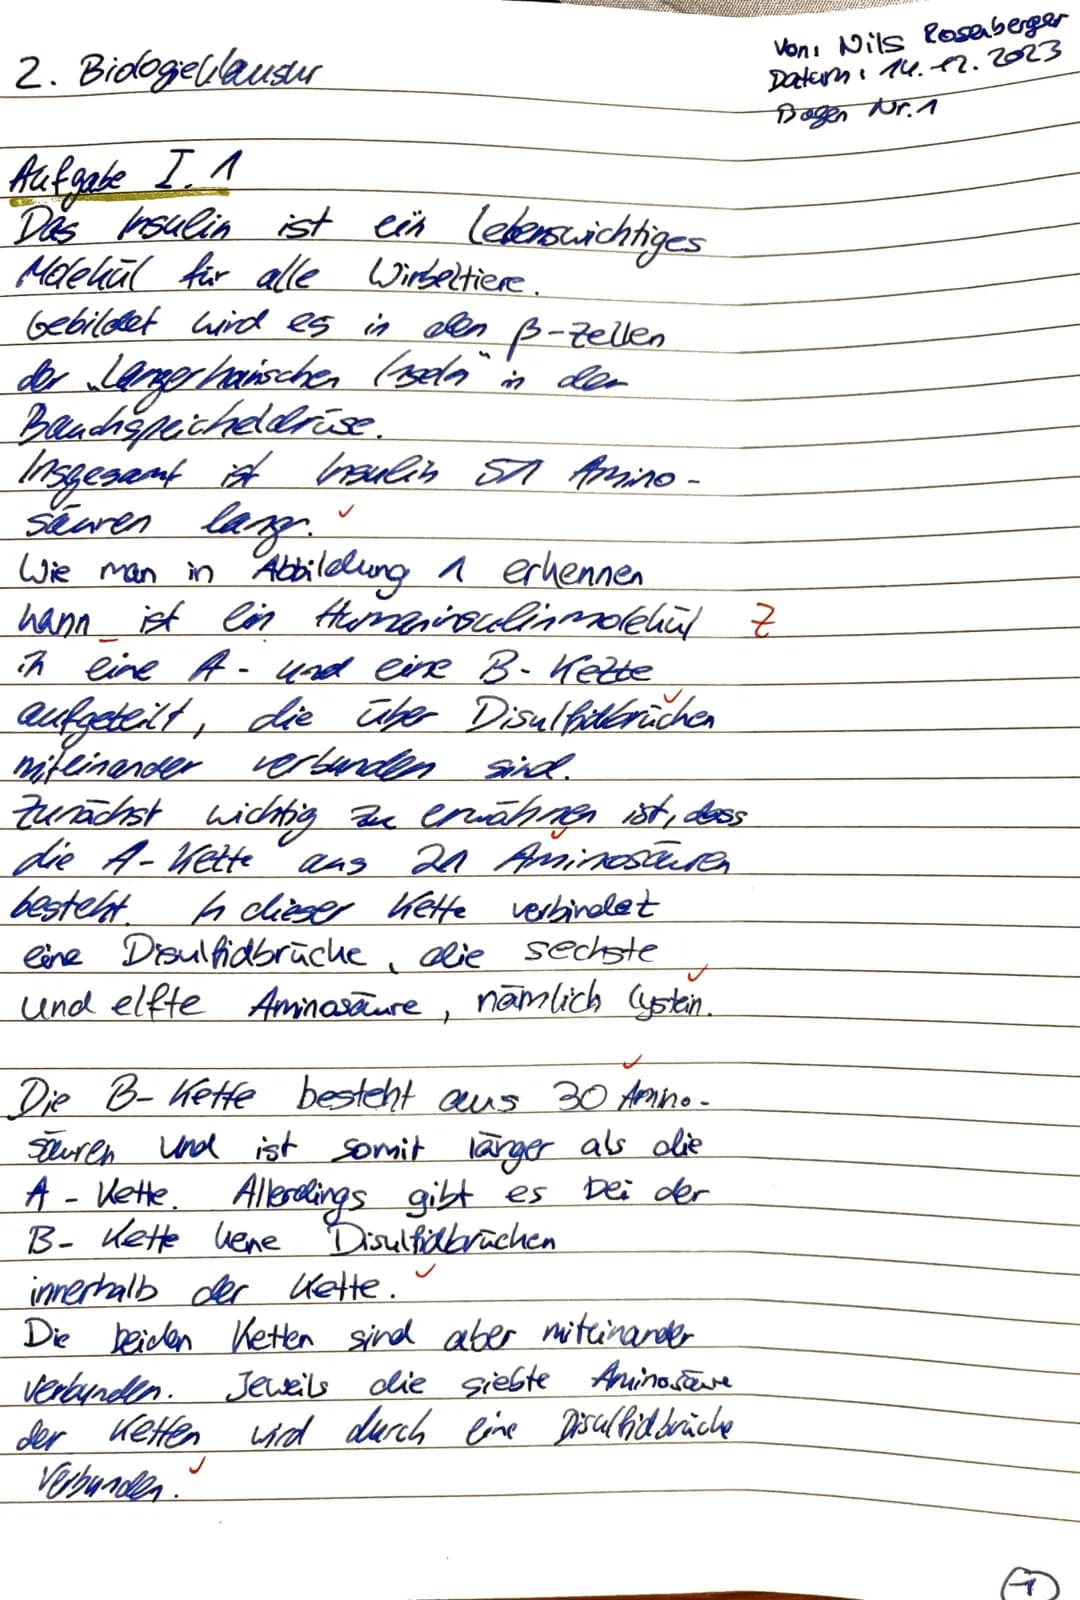 2. Biologieklausur
Von: Nils Rosenberger
Datum: 14.12.2023
Bogen Nr. 1
Aufgabe I. 1
Das Insulin ist ein Lebenswichtiges
Molekül für alle Wirbeltiere.
Gebildet wird es in den β-Zellen
der „Langerhanischen Inseln" in der
Bauchspeicheldrüse.
Insgesamt ist Insulin 51 Amino-
säuren lang.
Wie man in Abbildung 1 erkennen
kann ist ein Humaninsulinmolekül Z
in eine A- und eine B-Kette
aufgeteilt, die über Disulfidbrücken
miteinander verbunden sind.
Zunächst wichtig zu erwähnen ist, dass
die A-Kette aus 21 Aminosäuren
besteht. In dieser Kette verbindet
eine Disulfidbrücke, die sechste
und elfte Aminosäure, nämlich Cystein.
Die B-Kette besteht aus 30 Amino-
säuren und ist somit länger als die
A-Kette. Allerdings gibt es bei der
B-Kette kene Disulfidbrücken
innerhalb der Kette.
Die beiden Ketten sind aber miteinander
verbunden. Jeweils die siebte Aminosäure
der Ketten wird durch eine Disulfidbrücke
verbunden.
1